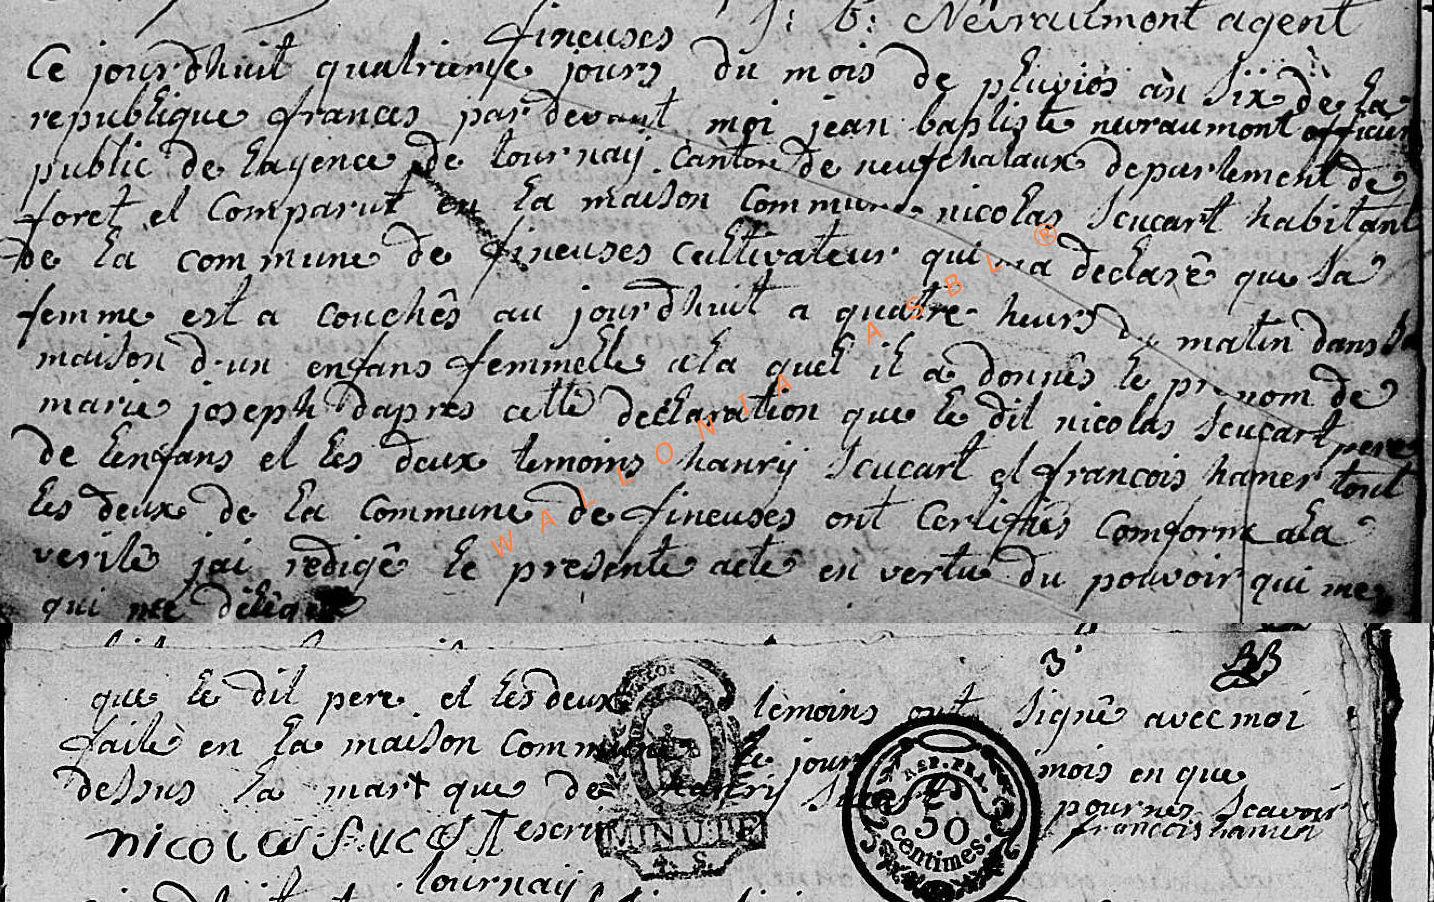 J: b: Nevraumont agent
fineuses
Ce jourdhuit quatrieme jours du mois de pluvios an six de la
republique frances par devant moi jean baptiste nevraumont officier
public de lagence de tournaij Canton de neufchataux departement de
foret el Comparut en la maison Commune nicolas Scucart habitant
de la commune de fineuses cultivateur qui ma declarê que sa
femme est a couchês au jourdhuit a quatre heurs du matin dans sa
maison d'un enfans femmelle ala quel il a donnês le prenom de
marie joseph dapres cette declaration que le dit nicolas Scucart pere
de lenfans et les deux temoins hanrij Scucart et francois hamer tout
les deux de la Commune de fineuses ont Certifiês Comforme ala
veritê jai redigê le presente acte en vertu du pouvoir qui me
qui me délègue
3 BB
que le dit pere et les deux temoins ont signê avec moi
faite en la maison Commune le jour mois en que
dessus la mart que de hanrij pour nes scavoir
escrir francois hamer
nicolas sucast
MINUTE
REP. FRA.
50
centimes.
tournaij
WALLONIA ASBL ®